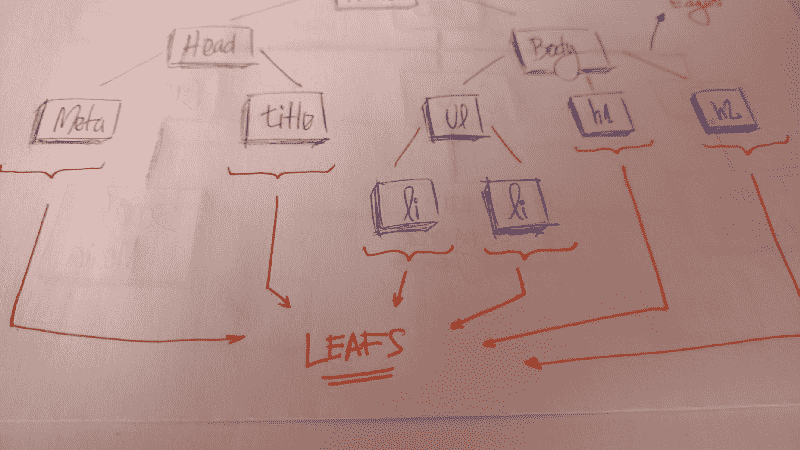 Head
Body
Meta
title
Ul
h1
h2
li
li
LEAFS